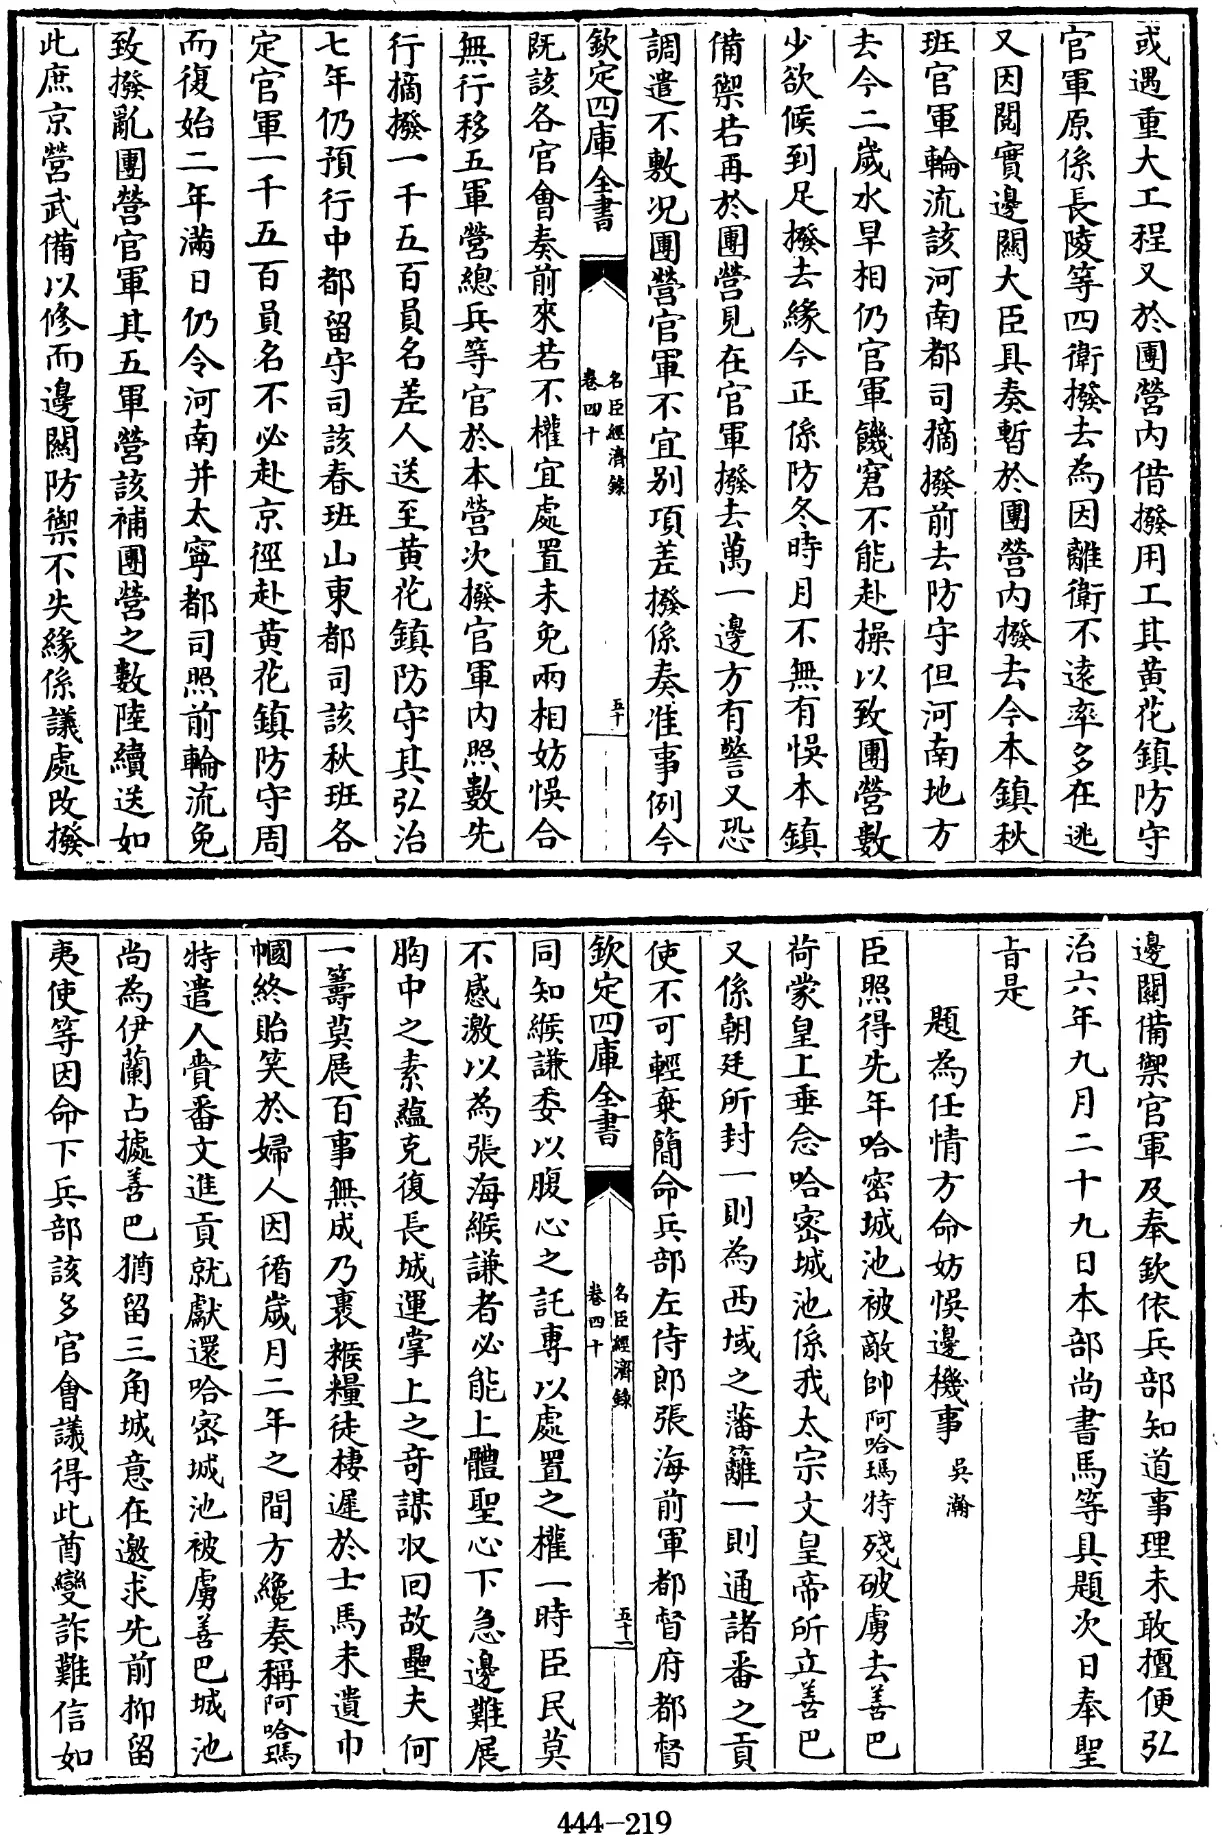 或遇重大工程又於團營内借撥用工其黄花鎮防守
官軍原係長陵等四衛撥去為因離衛不遠率多在逃
又因閱實邊關大臣具奏暫於團營内撥去今本鎮秋
班官軍輪流該河南都司摘撥前去防守但河南地方
去今二歲水旱相仍官軍饑窘不能赴操以致團營數
少欲候到足撥去緣今正係防冬時月不無有悞本鎮
備禦若再於團營見在官軍撥去萬一邊方有警又恐
調遣不敷况團營官軍不宜别項差撥係奏准事例今
欽定四庫全書
名臣經濟錄
卷四十
五十
既該各官會奏前來若不權宜處置未免兩相妨悞合
無行移五軍營總兵等官於本營次撥官軍内照數先
行摘撥一千五百員名差人送至黄花鎮防守其弘治
七年仍預行中都留守司該春班山東都司該秋班各
定官軍一千五百員名不必赴京徑赴黄花鎮防守周
而復始二年滿日仍令河南并太寧都司照前輪流免
致撥亂團營官軍其五軍營該補團營之數陸續送如
此庶京營武備以修而邊關防禦不失緣係議處改撥
邊關備禦官軍及奉欽依兵部知道事理未敢擅便弘
治六年九月二十九日本部尚書馬等具題次日奉聖
旨是
題為任情方命妨悞邊機事 吳瀚
臣照得先年哈密城池被敵帥阿哈瑪特殘破虜去善巴
荷蒙皇上垂念哈密城池係我太宗文皇帝所立善巴
又係朝廷所封一則為西域之藩籬一則通諸番之貢
使不可輕棄簡命兵部左侍郎張海前軍都督府都督
欽定四庫全書
名臣經濟錄
卷四十
五十一
同知緱謙委以腹心之託專以處置之權一時臣民莫
不感激以為張海緱謙者必能上體聖心下急邊難展
胸中之素蘊克復長城運掌上之奇謀收回故壘夫何
一籌莫展百事無成乃裹糇糧徒棲遲於士馬未遺巾
幗終貽笑於婦人因循歲月二年之間方纔奏稱阿哈瑪
特遣人賫番文進貢就獻還哈密城池被虜善巴城池
尚為伊蘭占據善巴猶留三角城意在邀求先前抑留
夷使等因命下兵部該多官會議得此酋變詐難信如
444-219